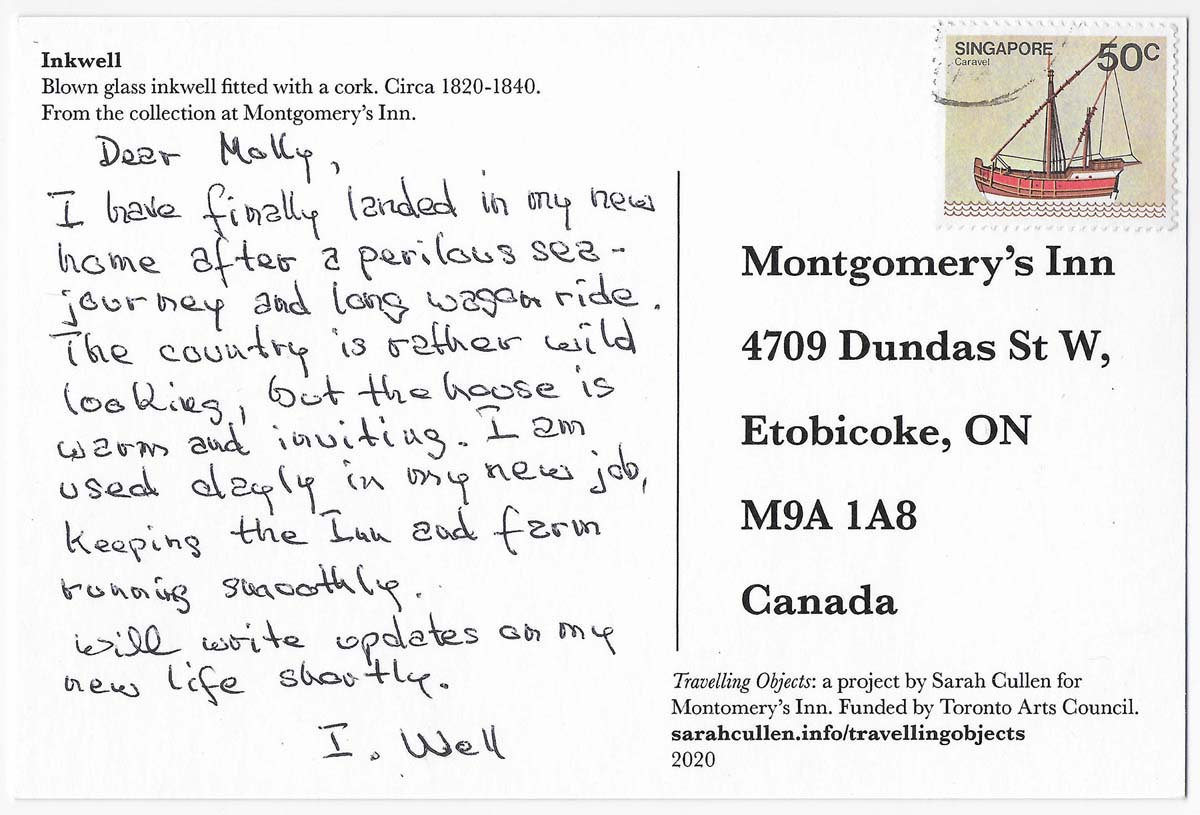 Inkwell
Blown glass inkwell fitted with a cork. Circa 1820-1840.
From the collection at Montgomery's Inn.
Dear Molly,
I have finally landed in my new
home after a perilous sea-
journey and long wagon ride.
The country is rather wild
looking, but the house is
warm and inviting. I am
used dayly in my new job,
keeping the Inn and farm
running smoothly.
will write updates on my
new life shortly.
I. Well
SINGAPORE 50C
Caravel
Montgomery's Inn
4709 Dundas St W,
Etobicoke, ON
M9A 1A8
Canada
Travelling Objects: a project by Sarah Cullen for
Montomery's Inn. Funded by Toronto Arts Council.
sarahcullen.info/travellingobjects
2020